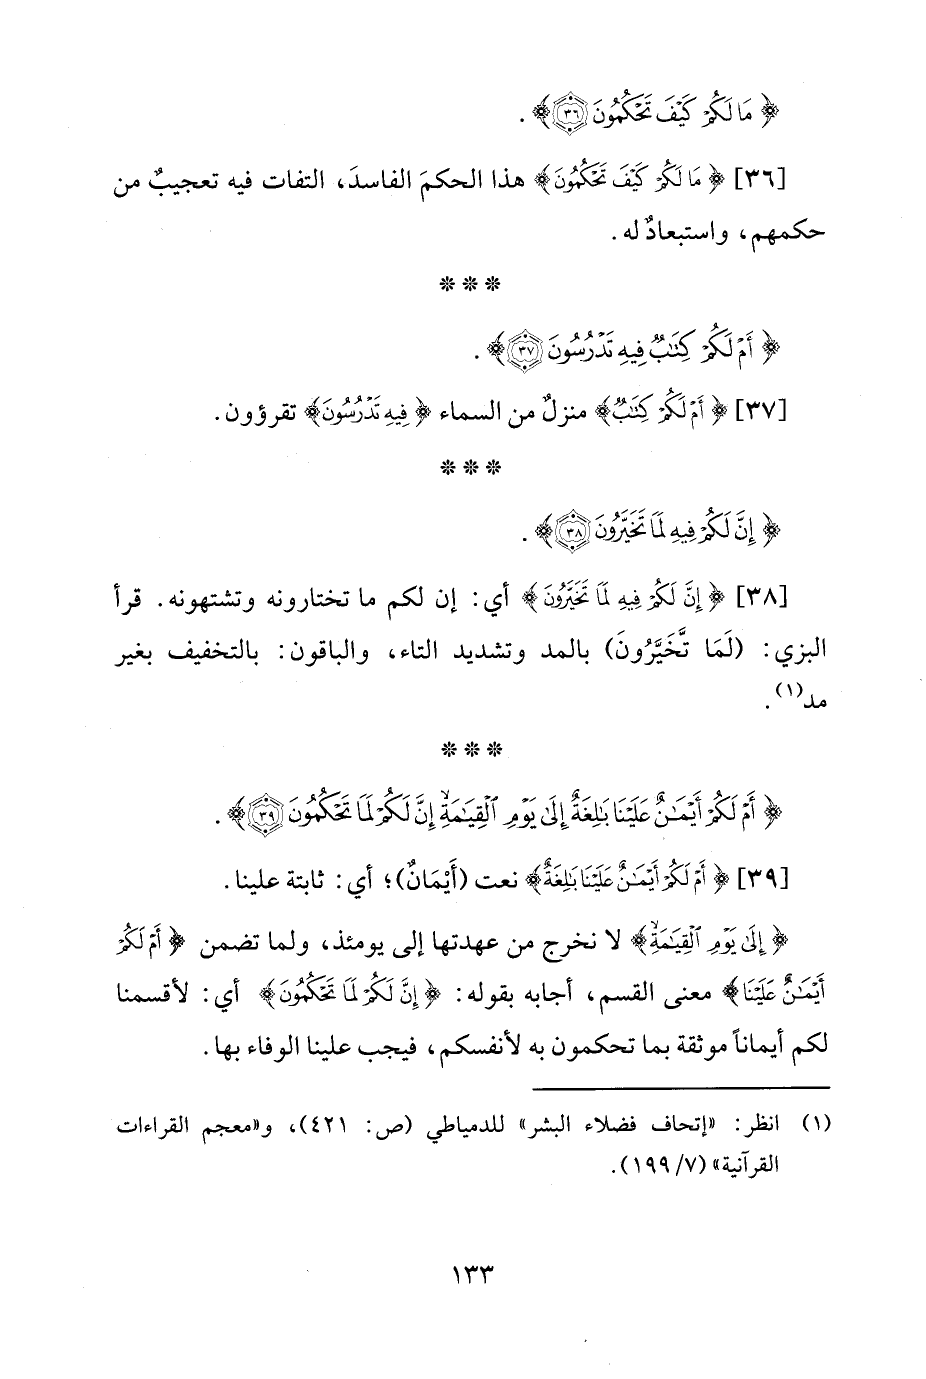 ﴿ مَا لَكُمْ كَيْفَ تَحْكُمُونَ ٣٦ ﴾ .
[٣٦] ﴿ مَا لَكُمْ كَيْفَ تَحْكُمُونَ ﴾ هذا الحكمَ الفاسدَ، التفات فيه تعجيبٌ من
حكمهم، واستبعادٌ له .
* * *
﴿ أَمْ لَكُمْ كِتَٰبٌ فِيهِ تَدْرُسُونَ ٣٧ ﴾ .
[٣٧] ﴿ أَمْ لَكُمْ كِتَٰبٌ ﴾ منزلٌ من السماء ﴿ فِيهِ تَدْرُسُونَ ﴾ تقرؤون .
* * *
﴿ إِنَّ لَكُمْ فِيهِ لَمَا تَخَيَّرُونَ ٣٨ ﴾ .
[٣٨] ﴿ إِنَّ لَكُمْ فِيهِ لَمَا تَخَيَّرُونَ ﴾ أي: إن لكم ما تختارونه وتشتهونه . قرأ
البزي: (لَمَا تَّخَيَّرُونَ) بالمد وتشديد التاء، والباقون: بالتخفيف بغير
مد(١).
* * *
﴿ أَمْ لَكُمْ أَيْمَٰنٌ عَلَيْنَا بَٰلِغَةٌ إِلَىٰ يَوْمِ ٱلْقِيَٰمَةِۙ إِنَّ لَكُمْ لَمَا تَحْكُمُونَ ٣٩ ﴾ .
[٣٩] ﴿ أَمْ لَكُمْ أَيْمَٰنٌ عَلَيْنَا بَٰلِغَةٌ ﴾ نعت (أَيْمَانٌ)؛ أي: ثابتة علينا .
﴿ إِلَىٰ يَوْمِ ٱلْقِيَٰمَةِۙ ﴾ لا نخرج من عهدتها إلى يومئذ، ولما تضمن ﴿ أَمْ لَكُمْ
أَيْمَٰنٌ عَلَيْنَا ﴾ معنى القسم، أجابه بقوله: ﴿ إِنَّ لَكُمْ لَمَا تَحْكُمُونَ ﴾ أي: لأقسمنا
لكم أيماناً موثقة بما تحكمون به لأنفسكم، فيجب علينا الوفاء بها .
(١) انظر: «إتحاف فضلاء البشر» للدمياطي (ص: ٤٢١)، و«معجم القراءات
القرآنية» (٧/ ١٩٩).
١٣٣